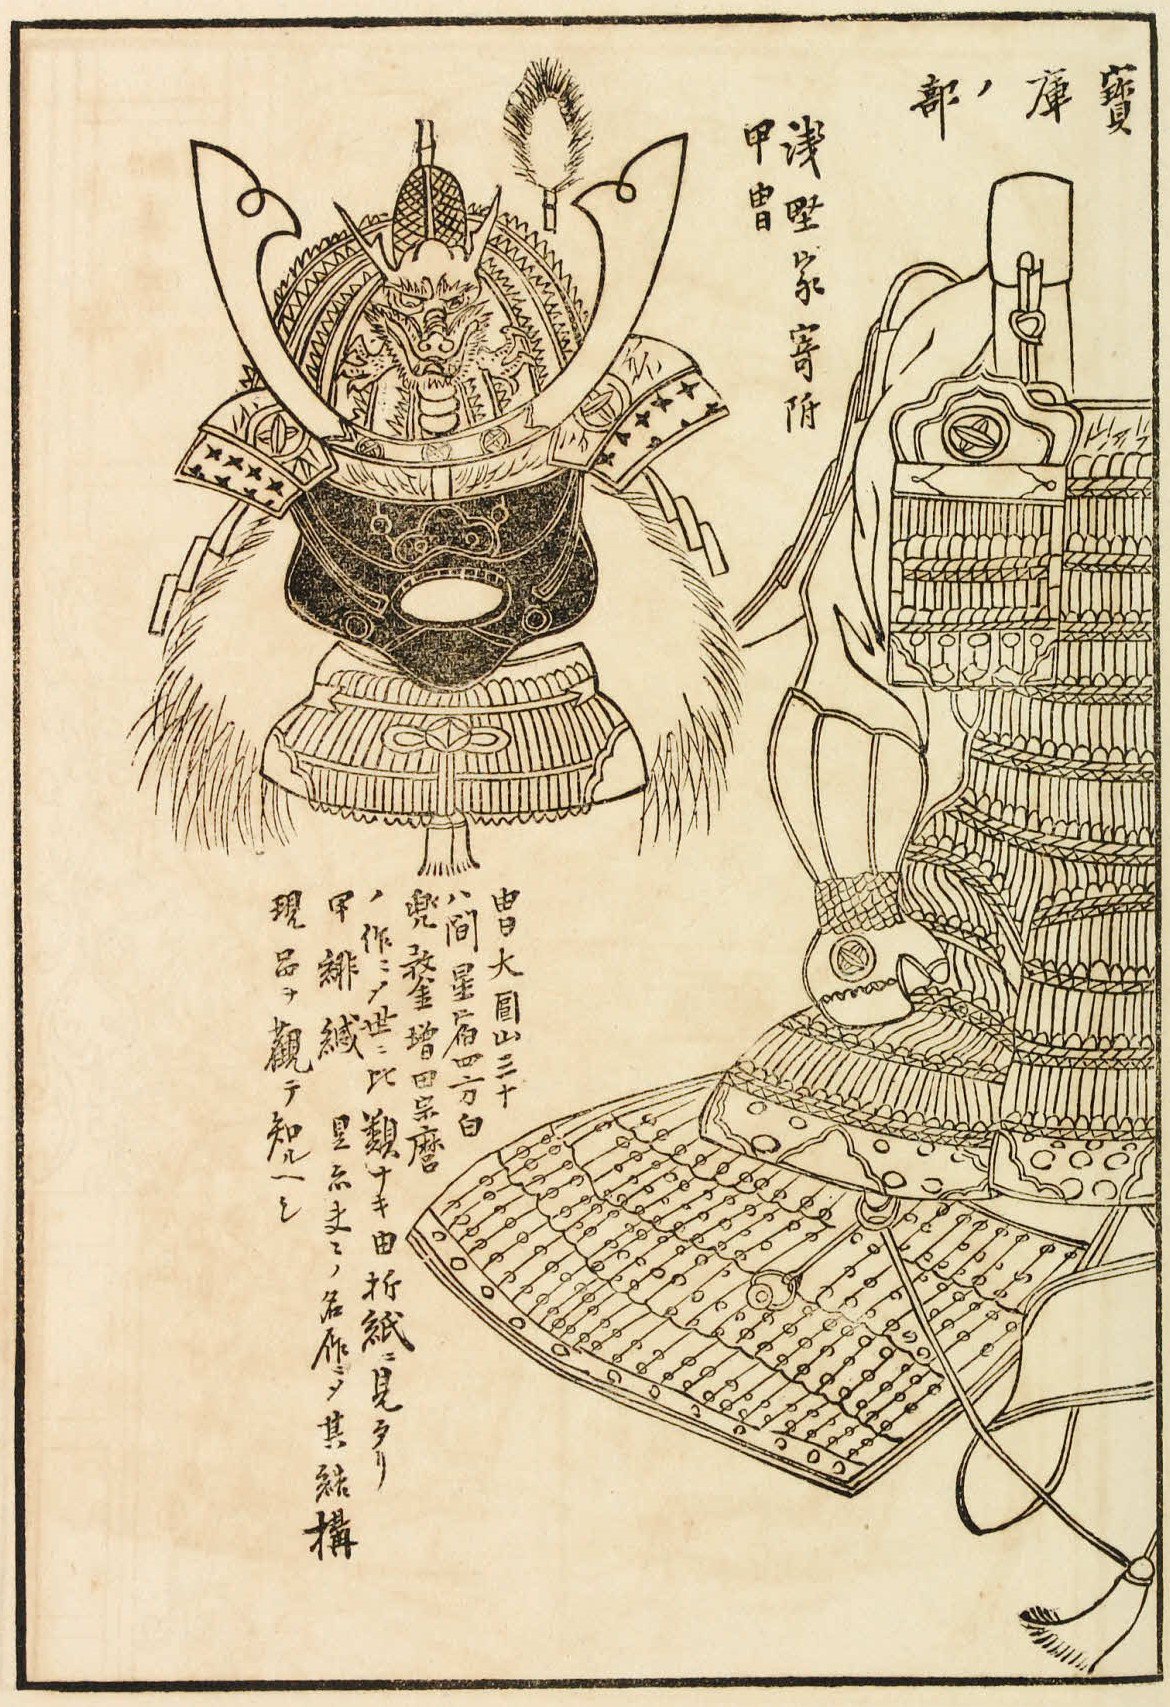 寶庫ノ部
浅野家寄附
甲冑
冑大圓山三十
八間星眉四方白
兜鍪増田宗麿
ノ作ニ〆世ニ比類ナキ由折紙ニ見タリ
甲緋縅 是亦 ノ名作ニ〆其結構
現品ヲ觀テ知ルヘシ